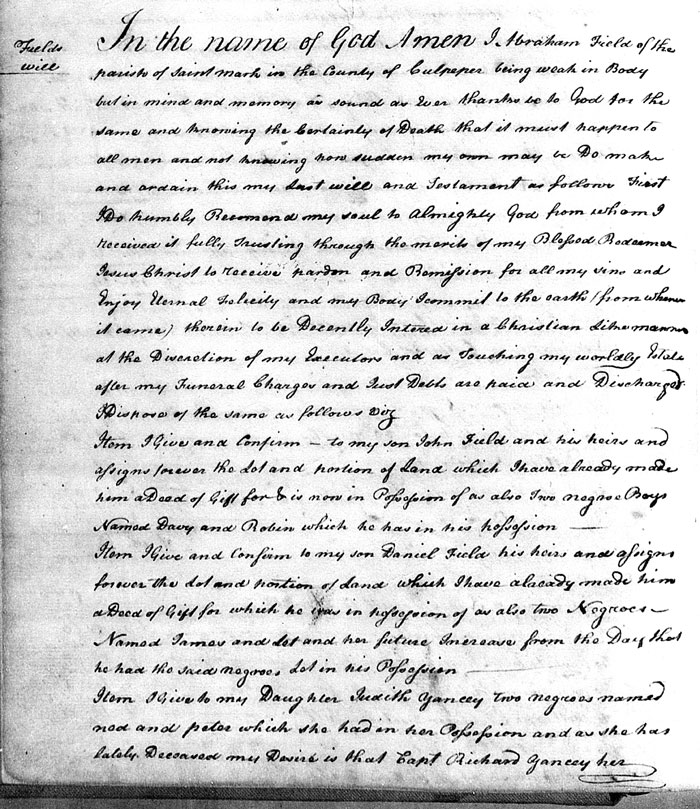 Fields
will
In the name of God Amen I Abraham Field of the
parish of Saint mark in the County of Culpeper being weak in Body
but in mind and memory as sound as Ever thanks be to God for the
same and knowing the Certainty of Death that it must happen to
all men and not knowing how sudden my own may be Do make
and ordain this my Last will and Testament as follows First
I Do humbly Recomend my soul to Almighty God from whom I
received it fully trusting through the merits of my Blessed Redeemer
Jesus Christ to receive pardon and Remission for all my sins and
Enjoy Eternal felicity and my Body I commit to the earth (from whence
it came) therein to be Decently Intered in a Christian Like manner
at the Discretion of my Executors and as Touching my worldly Estate
after my Funeral Charges and Just Debts are paid and Discharged
I Dispose of the same as follows viz
Item I Give and Confirm – to my son John Field and his heirs and
assigns forever the Lot and portion of Land which I have already made
him a Deed of Gift for & is now in Possession of as also Two negroe Boys
Named Davy and Robin which he has in his possession —
Item I Give and Confirm to my son Daniel Field his heirs and assigns
forever the Lot and portion of Land which I have already made him
a Deed of Gift for which he was in possession of as also two Negroes –
Named James and Let and her future Increase from the Day that
he had the said negroes Let in his Possession —
Item I Give to my Daughter Judith Yancey Two negroes named
ned and peter which she had in her Possession and as she has
lately Deceased my Desire is that Capt Richard Yancey her